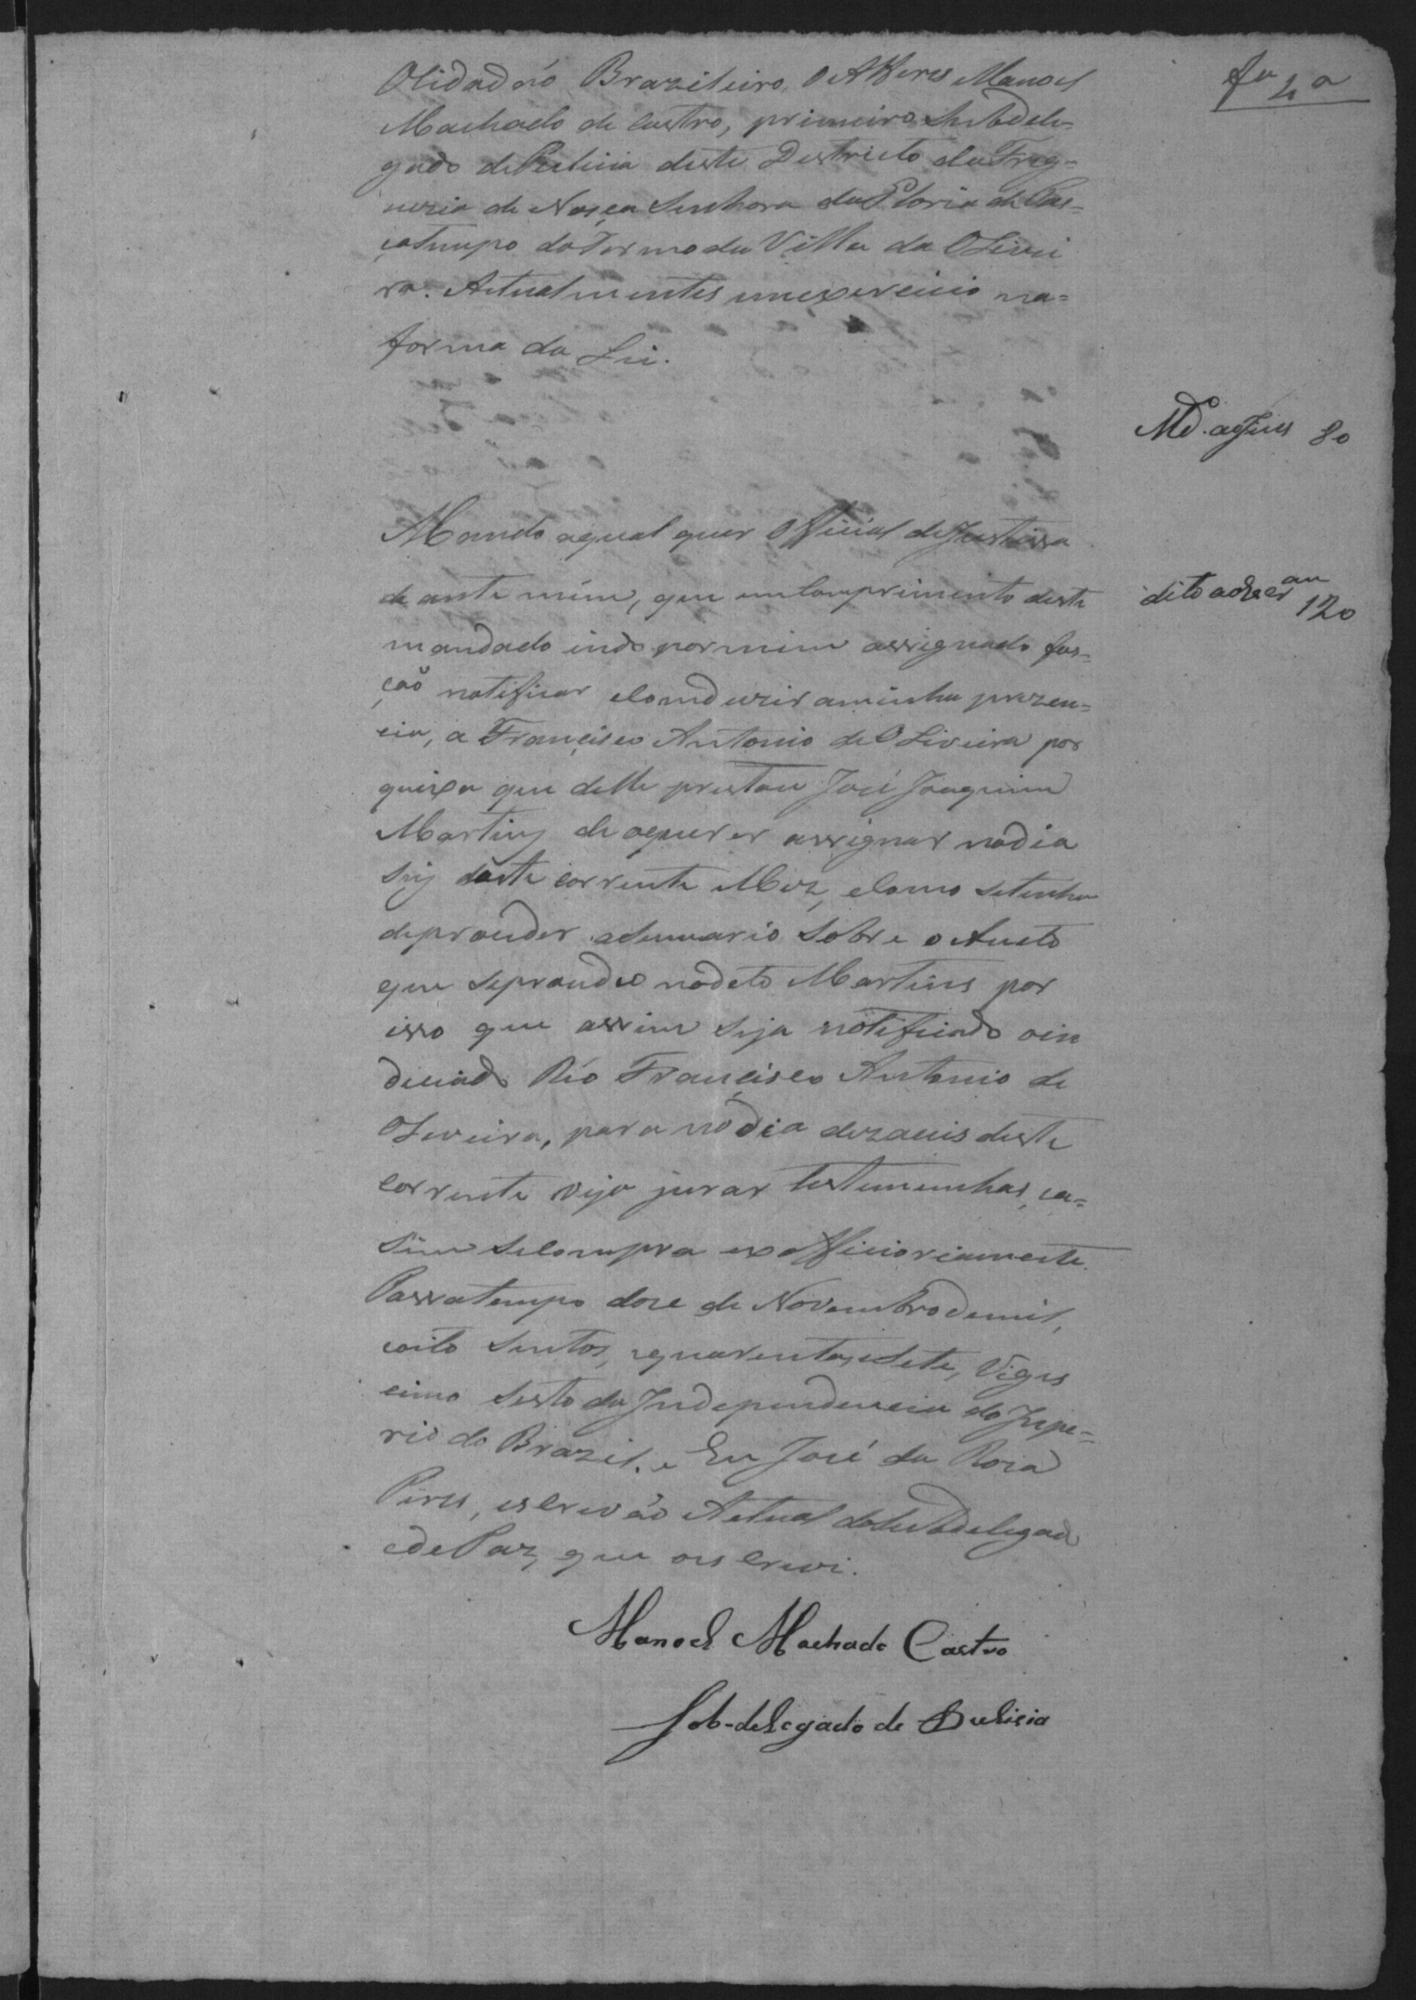 Cidadaó Brazileiro, O Alferes Manoel
Machado de Castro, primeiro Subdele-
gado de Pulicia deste Destricto da Freg-
uezia de Nossa Senhora da Gloria de Pas-
satempo do Termo da Villa da Olivei
ra. Actualmentes em exercicio na=
forma da Lei.
Mando aqual quer Official de Justissa
de ante mim, que em Comprimento deste
mandado indo por mim assignado fas-
ção notificar e Comduzir aminha prezen=
cia, a Francisco Antonio de Oliveira por
queixa que delle prestou José Joaquim
Martins de oquerer assignar nodia
Seis deste Corrente Mez, e Como Setenha
deproceder aSumario Sobre o Aucto
que Seprocedeo nodeto Martins por
isso que assim Seja notificado oin
diciado Réo Francisco Antonio de
Oliveira, para nodia dezaceis deste
Corrente vejo jurar testemunhas, ea=
Sim SeCompra exofficioriamente.
Passatempo doze de Novembro de mil,
coito Sentos, equarenta, eSete, Viges
cimo Sesto da Independencia do Impe=
rio do Brazil. e Eu José da Roza
Pires, esCrivão Actual doSubdelegado
e de Paz, que oesCrevi.
Manoel Machado Castro
Sob-delegado de Pulicia
Md. aoJues 80
dito aoEscr am 120